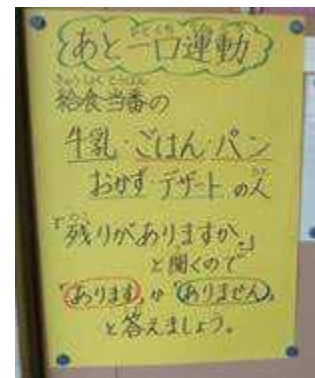 あと一口運動
給食当番の
牛乳・ごはん・パン
おかず デザート の人
「残りがありますか。」
と聞くので
「あります」か「ありません」
と答えましょう。